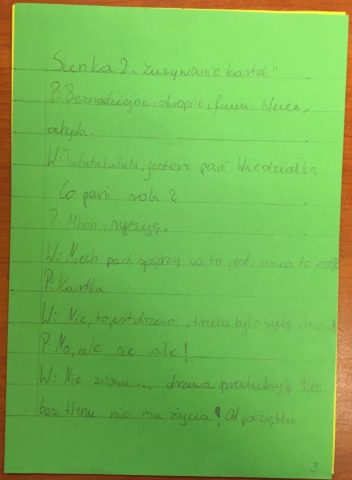 Scenka 2. "zużywanie kartek"
P: Beznadziejne, okropne, fuuu, bleee,
ohyda.
W: Tututututu, jestem pani
Co pani robi?
P: Mhm,
W: Niech pani spojrzy co to jest, no co to jest
P: Kartka
W: Nie, to jest drzewo, trzeba było
P: No, ale nie całe!
W: Nie znowu... drzewa produkują tlen
bez tlenu nie ma życia! Od początku
3